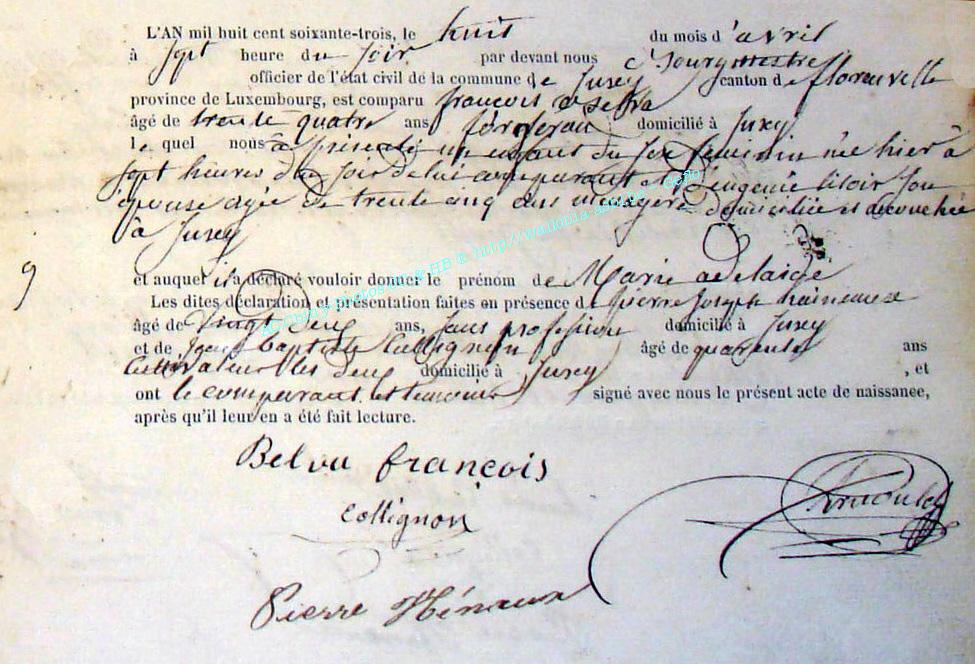 L'AN mil huit cent soixante-trois, le huit du mois d'avril
à sept heure du soir par devant nous Bourgmestre
officier de l'état civil dé la commune de Jusey canton de florenville
province de Luxembourg, est comparu françois Belva
âgé de trente quatre ans domicilié à Jusey
le quel nous à présenté un enfant du sexe feminin née hier à
sept heures du soir de lui comparant et d'eugenie lisoir son
épouse agée de trente cinq ans menagère domiciliée et accouchée
à Jusey
9
et auquel il a déclaré vouloir donner le prénom de Marie adelaide
Les dites déclaration et présentation faites en présence de pierre Joseph
âgé de vingt deux ans, sans profession domicilié à Jusey
et de Jean baptiste Collignon âgé de quarente ans
cultivateur les deux domicilié à Jusey , et
ont le comparant et temoins signé avec nous le présent acte de naissance,
après qu'il leur en a été fait lecture.
Belva françois
Collignon
Pierre Hénaux